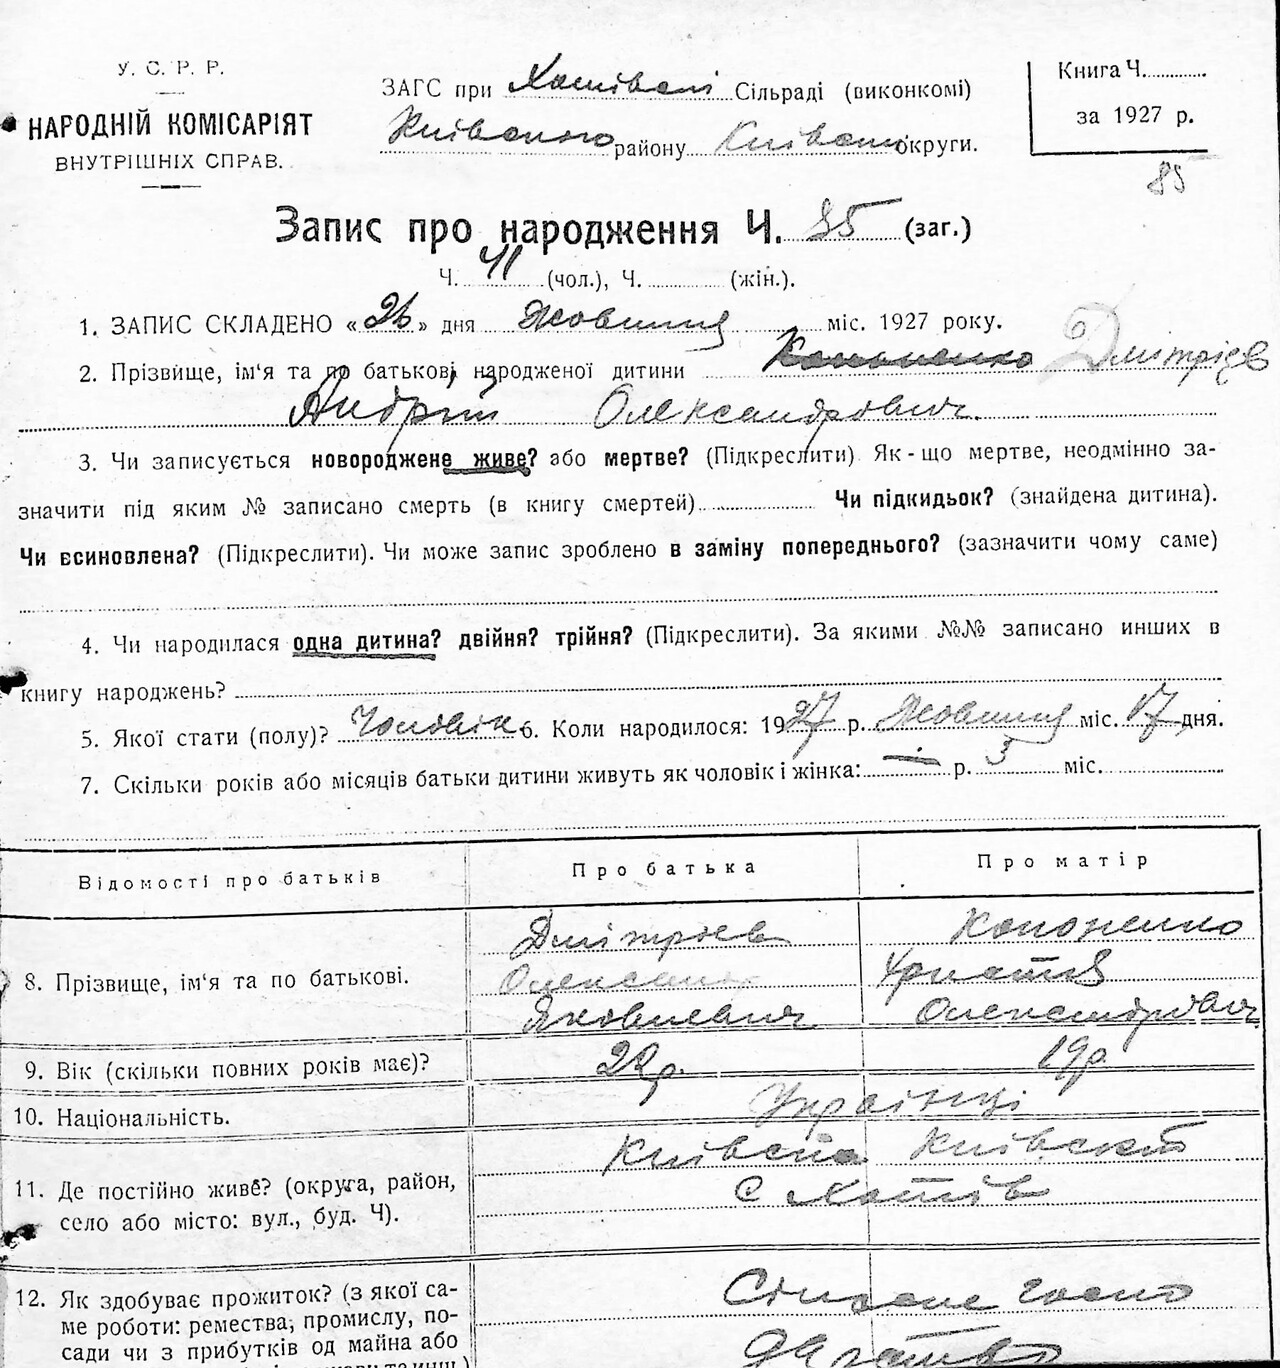 У. С. Р. Р.
НАРОДНІЙ КОМІСАРІЯТ
ВНУТРІШНІХ СПРАВ.
ЗАГС при Хотівскі Сільраді (виконкомі)
Київського району Київської округи.
Книга Ч.
за 1927 р.
85
Запис про народження Ч. 85 (заг.)
Ч. 41 (чол.), Ч. (жін.).
1. ЗАПИС СКЛАДЕНО «26» дня Жовтня міс. 1927 року.
2. Прізвище, ім'я та по батькові народженої дитини Кононенко Дмитрієв
Андрій Олександрович.
3. Чи записується новороджене живе? або мертве? (Підкреслити) Як-що мертве, неодмінно за-
значити під яким № записано смерть (в книгу смертей) Чи підкидьок? (знайдена дитина).
Чи всиновлена? (Підкреслити). Чи може запис зроблено в заміну попереднього? (зазначити чому саме)
4. Чи народилася одна дитина? двійня? трійня? (Підкреслити). За якими №№ записано инших в
книгу народжень?
5. Якої стати (полу)? Чоловік 6. Коли народилося: 1927 р. Жовтня міс. 17 дня.
7. Скільки років або місяців батьки дитини живуть як чоловік і жінка: — р. 3 міс.
Відомості про батьків Про батька Про матір
8. Прізвище, ім'я та по батькові.
Дмітрієв
Олександр
Яковлевич
Кононенко
Христя
Олександрович
9. Вік (скільки повних років має)? 22р. 19р.
10. Національність. Українці
11. Де постійно живе? (округа, район,
село або місто: вул., буд. Ч).
Київска Київскій
С Хотів
12. Як здобуває прожиток? (з якої са-
ме роботи: ремества, промислу, по-
сади чи з прибутків од майна або
Сільське госпо
дарство